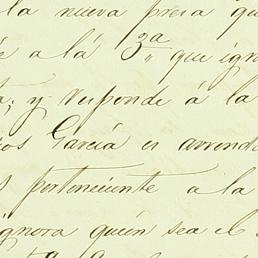 la nueva presa qu
é a lá 3ª que ignr
a; y responde á la
os García es arrenda
s pertenciente a la
ignora quien sea el